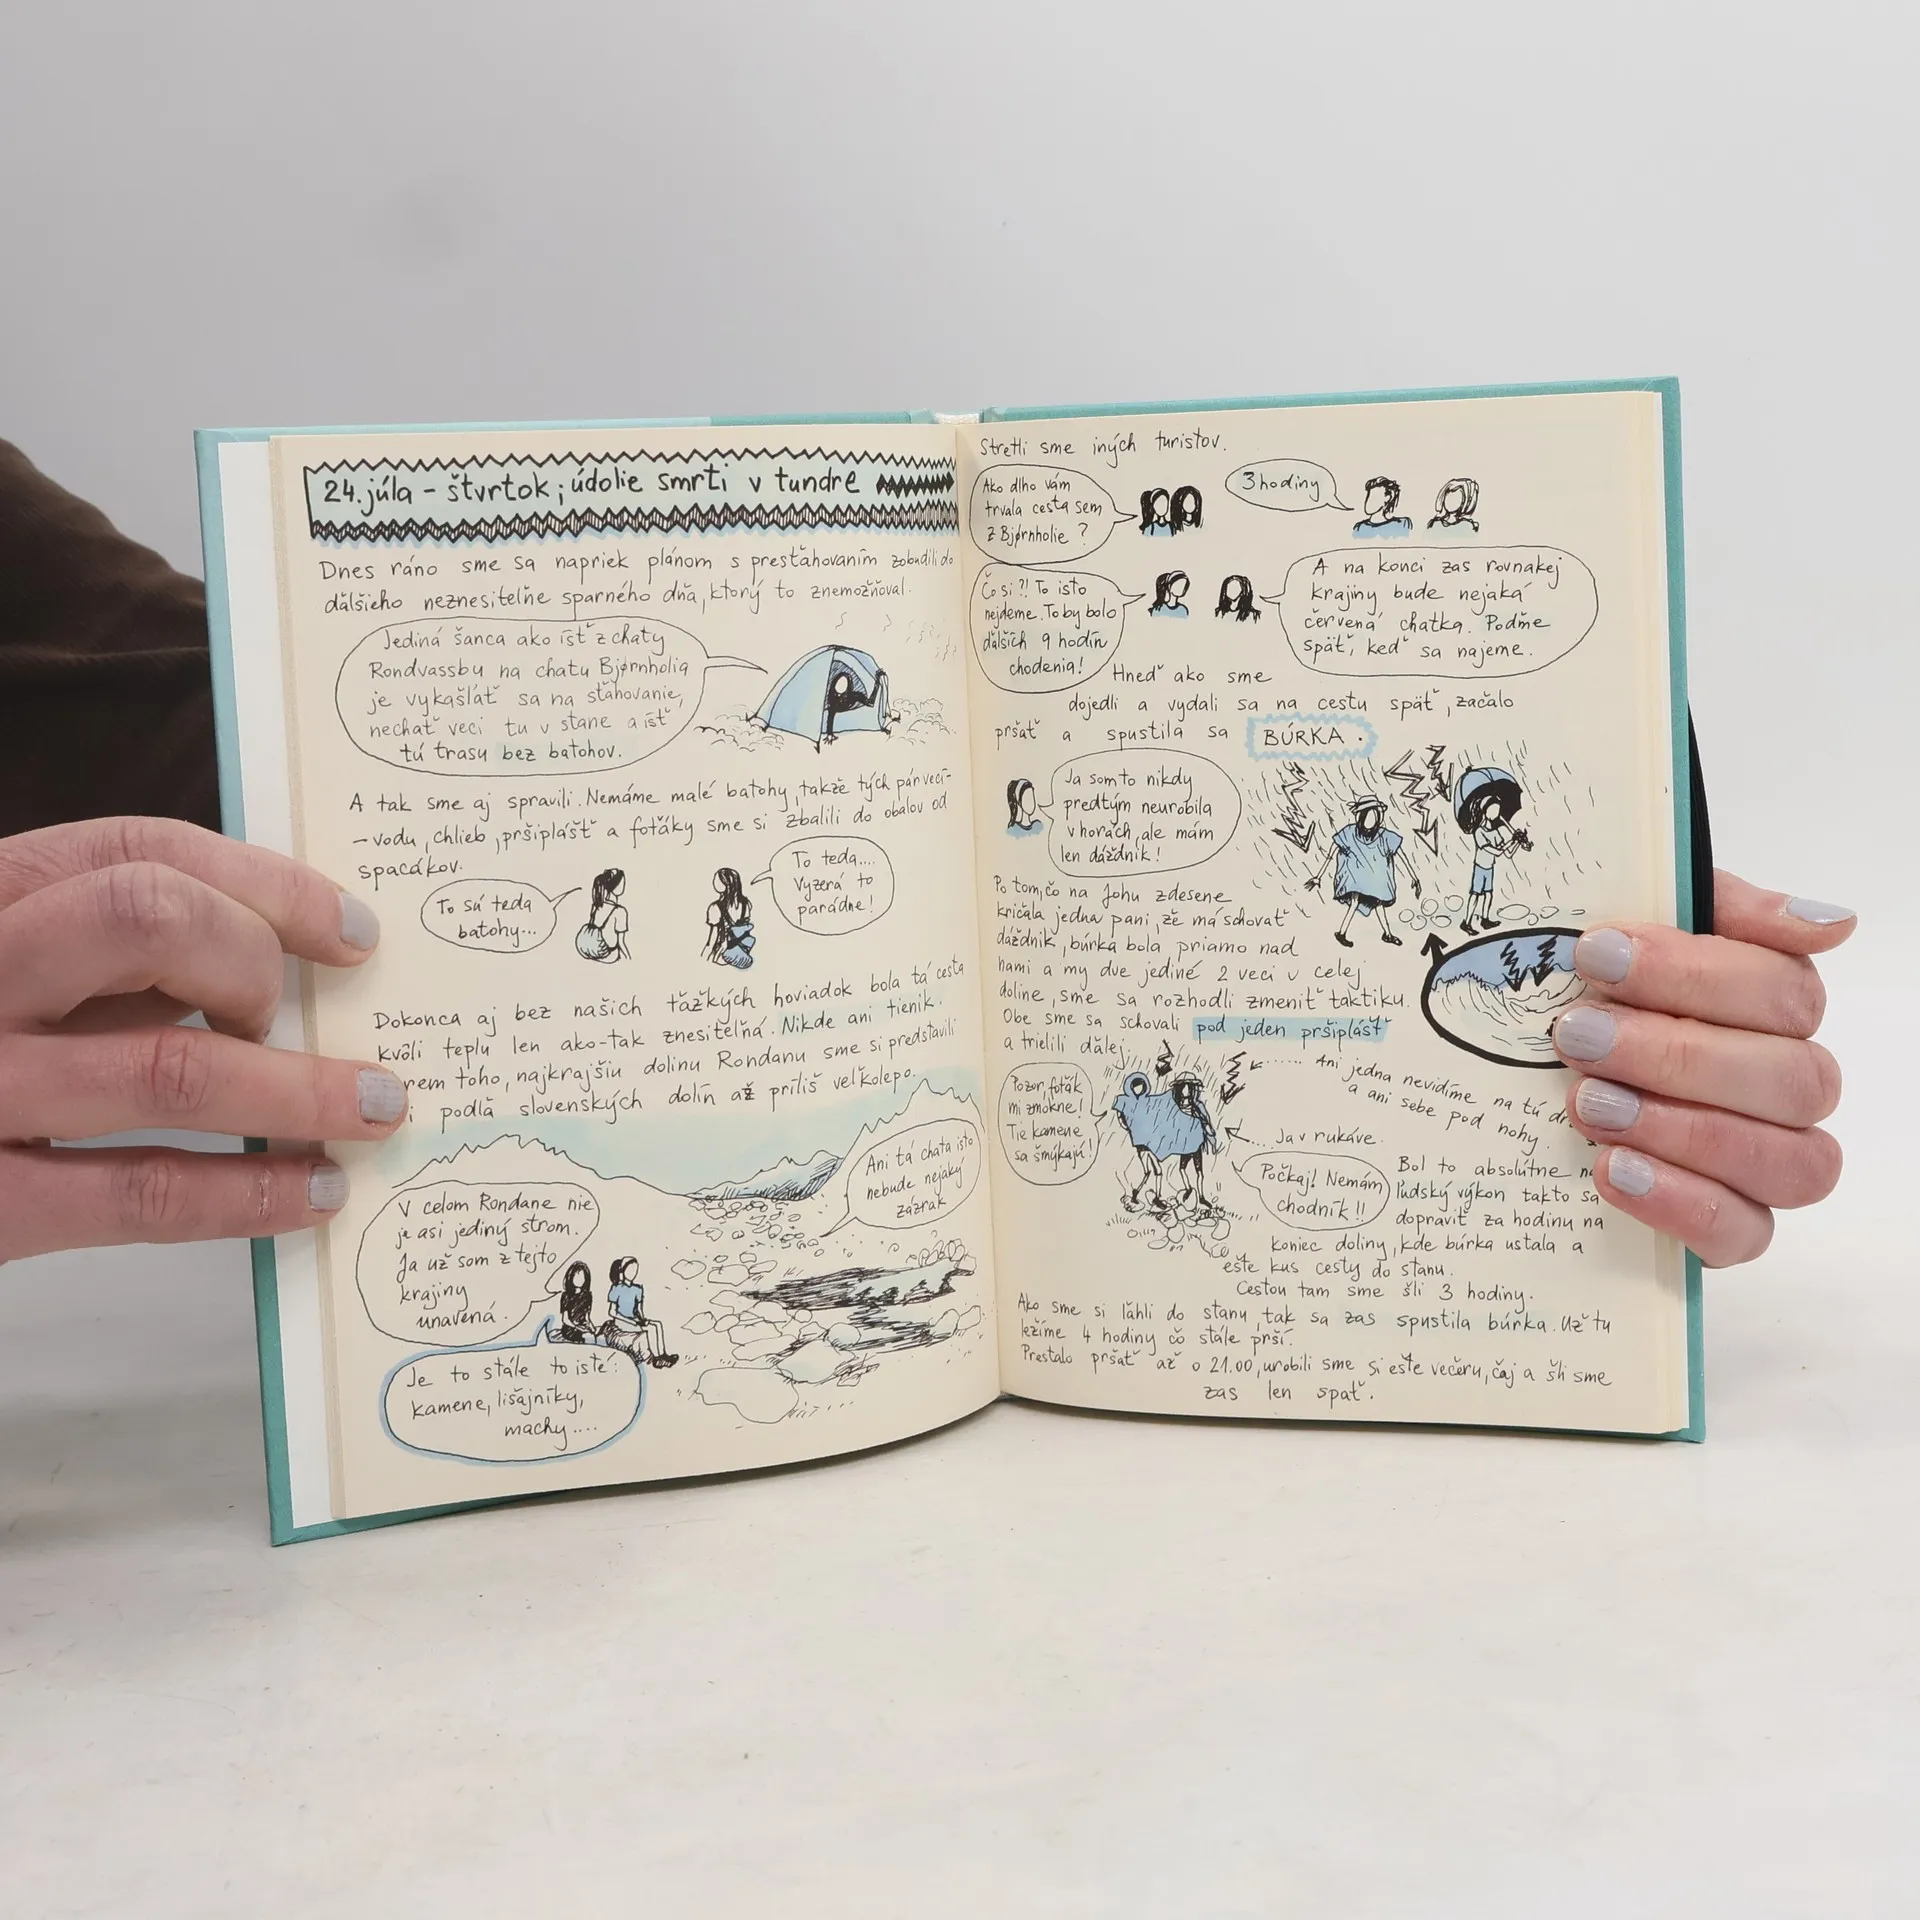 24. júla - štvrtok; údolie smrti v tundre
Dnes ráno sme sa napriek plánom s presťahovaním zobudili do
ďalšieho neznesiteľne sparného dňa, ktorý to znemožňoval.
Jediná šanca ako ísť z chaty
Rondvassbu na chatu Bjørnholia
je vykašlať sa na sťahovanie,
nechať veci tu v stane a ísť
tú trasu bez batohov.
A tak sme aj spravili. Nemáme malé batohy, takže tých pár vecí-
- vodu, chlieb, pršiplášť a foťáky sme si zbalili do obalov od
spacákov.
To sú teda
batohy...
To teda....
Vyzerá to
parádne!
Dokonca aj bez našich ťažkých hoviadok bola tá cesta
kvôli teplu len ako-tak znesiteľná. Nikde ani tienik.
rem toho, najkrajšiu dolinu Rondanu sme si predstavili
i podľa slovenských dolín až príliš veľkolepo.
Ani tá chata isto
nebude nejaký
zázrak
V celom Rondane nie
je asi jediný strom.
Ja už som z tejto
krajiny
unavená.
Je to stále to isté:
kamene, lišajníky,
machy....
Stretli sme iných turistov.
Ako dlho vám
trvala cesta sem
z Bjørnholie ?
3 hodiny
Čo si ?! To isto
nejdeme. To by bolo
ďalších 9 hodín
chodenia!
A na konci zas rovnakej
krajiny bude nejaká
červená chatka. Poďme
späť, keď sa najeme.
Hneď ako sme
dojedli a vydali sa na cestu späť, začalo
pršať a spustila sa BÚRKA.
Ja som to nikdy
predtým neurobila
v horách, ale mám
len dáždnik!
Po tom, čo na Johu zdesene
kričala jedna pani, že má schovať
dáždnik, búrka bola priamo nad
nami a my dve jediné 2 veci v celej
doline, sme sa rozhodli zmeniť taktiku.
Obe sme sa schovali pod jeden pršiplášť
a trielili ďalej.
Ani jedna nevidíme na tú
a ani sebe pod nohy.
Pozor, foťák
mi zmokne!
Tie kamene
sa šmýkajú!
Ja v rukáve.
Počkaj! Nemám
chodník!!
Bol to absolútne
ľudský výkon takto sa
dopraviť za hodinu na
koniec doliny, kde búrka ustala a
ešte kus cesty do stanu.
Cestou tam sme šli 3 hodiny.
Ako sme si ľahli do stanu, tak sa zas spustila búrka. Už tu
ležíme 4 hodiny čo stále prší.
Prestalo pršať až o 21.00, urobili sme si ešte večeru, čaj a šli sme
zas len spať.